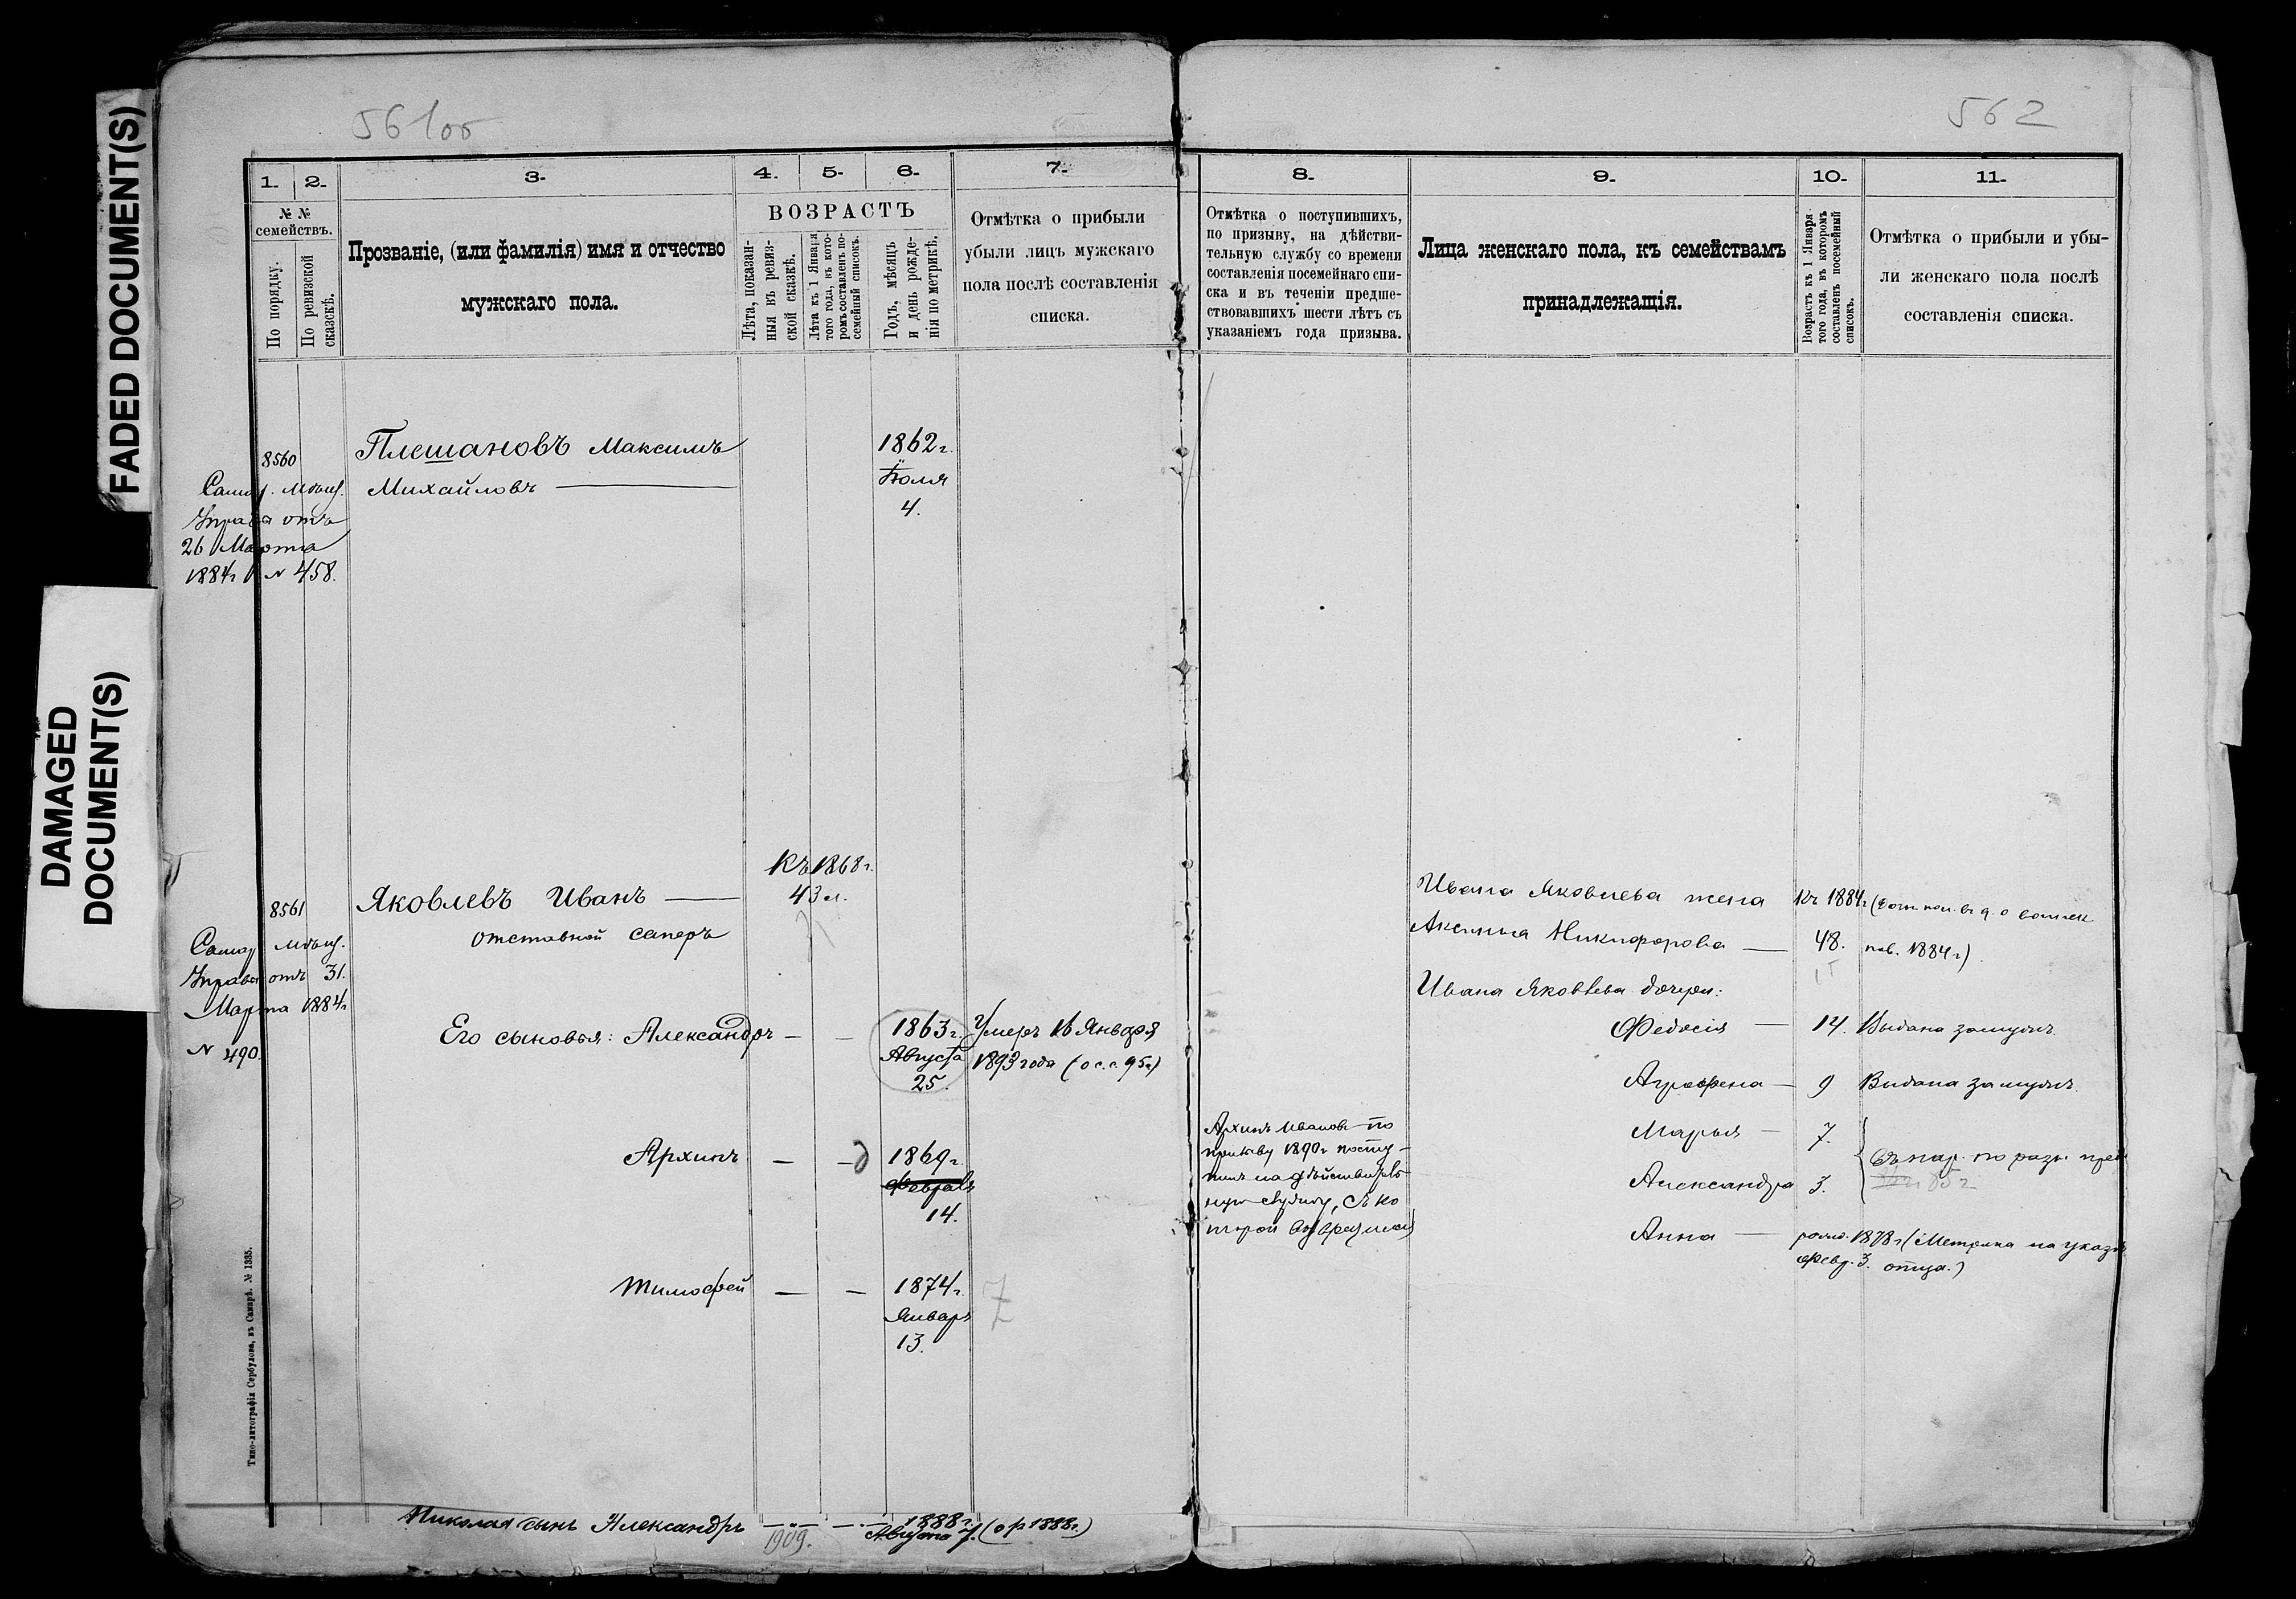 FADED DOCUMENT(S)
DAMAGED
DOCUMENT(S)
561об
562
1. 2. 3. 4. 5. 6. 7.
№ №
семействъ.
По порядку.
По ревизской
сказскѣ.
Прозваніе, (или фамилія) имя и отчество
мужскаго пола.
ВОЗРАСТЪ
Лѣта, показан-
ныя въ ревиз-
ской сказкѣ.
Лѣта къ 1 Января
того года, въ кото-
ромъ составленъ по-
семейный списокъ.
Годъ, мѣсяцъ
и день рожде-
нія по метрикѣ.
Отмѣтка о прибыли
убыли лицъ мужскаго
пола послѣ составленія
списка.
8560
Самар. Мѣщ.
Управы отъ
26 Марта
1884 г № 458.
Плешановъ Максимъ
Михайловъ
1862 г.
Іюля
4.
8561
Самар Мѣщ.
Управы отъ 31.
Марта 1884 г
№ 490.
Яковлевъ Иванъ
отставной саперъ
Къ 1868 г.
43 л.
Его сыновья: Александръ — —
1863 г.
Августа
25.
Умеръ 16 Января
1893 года (о с. с. 95 г)
Архипъ — —
1869 г.
Февраля
14.
Тимофей — —
1874 г.
Январь
13.
7
Николая сынъ Александръ
1909.
1888 г.
Августа 7. (о р 1888 г.)
Типо-литографія Сербулова, въ Самарѣ. № 1335.
8. 9. 10. 11.
Отмѣтка о поступившихъ,
по призыву, на дѣйстви-
тельную службу со времени
составленія посемейнаго спи-
ска и въ теченіи предше-
ствовавшихъ шести лѣтъ съ
указаніемъ года призыва.
Лица женскаго пола, къ семействамъ
принадлежащія.
Возрастъ къ 1 Января
того года, въ которомъ
составленъ посемейный
списокъ.
Отмѣтка о прибыли и убы-
ли женскаго пола послѣ
составленія списка.
Ивана Яковлева жена
Аксинья Никифорова —
Къ 1884 г
48.
пов. 1884 г)
Ивана Яковлева дочери:
Федосія — 14. Выдана замужъ.
Аграфена — 9 Выдана замужъ.
Архипъ Ивановъ по
призыву 1890 г посту-
пилъ на дѣйствитель-
ную службу, съ ко
торой возвратился
Марья — 7.
Александра 3.
Анна — 
1878 г (Метрика на указѣ
Февр. 3. отца.)